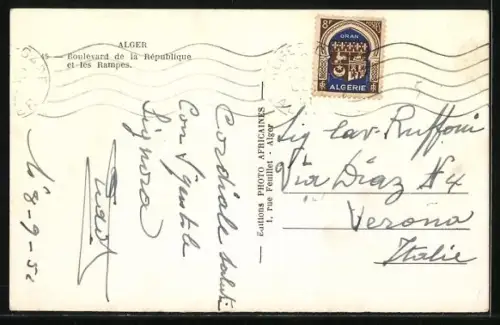 ALGER
45 — Boulevard de la République
et les Rampes.
8F
ORAN
ALGÉRIE
Editions PHOTO AFRICAINES
1, rue Feuillet - Alger
Cordiale saluti
Con Gentile
Signora
li 8-9-52
Sig Cav. Ruffoni
Via Diaz N 4
Verona
Italie